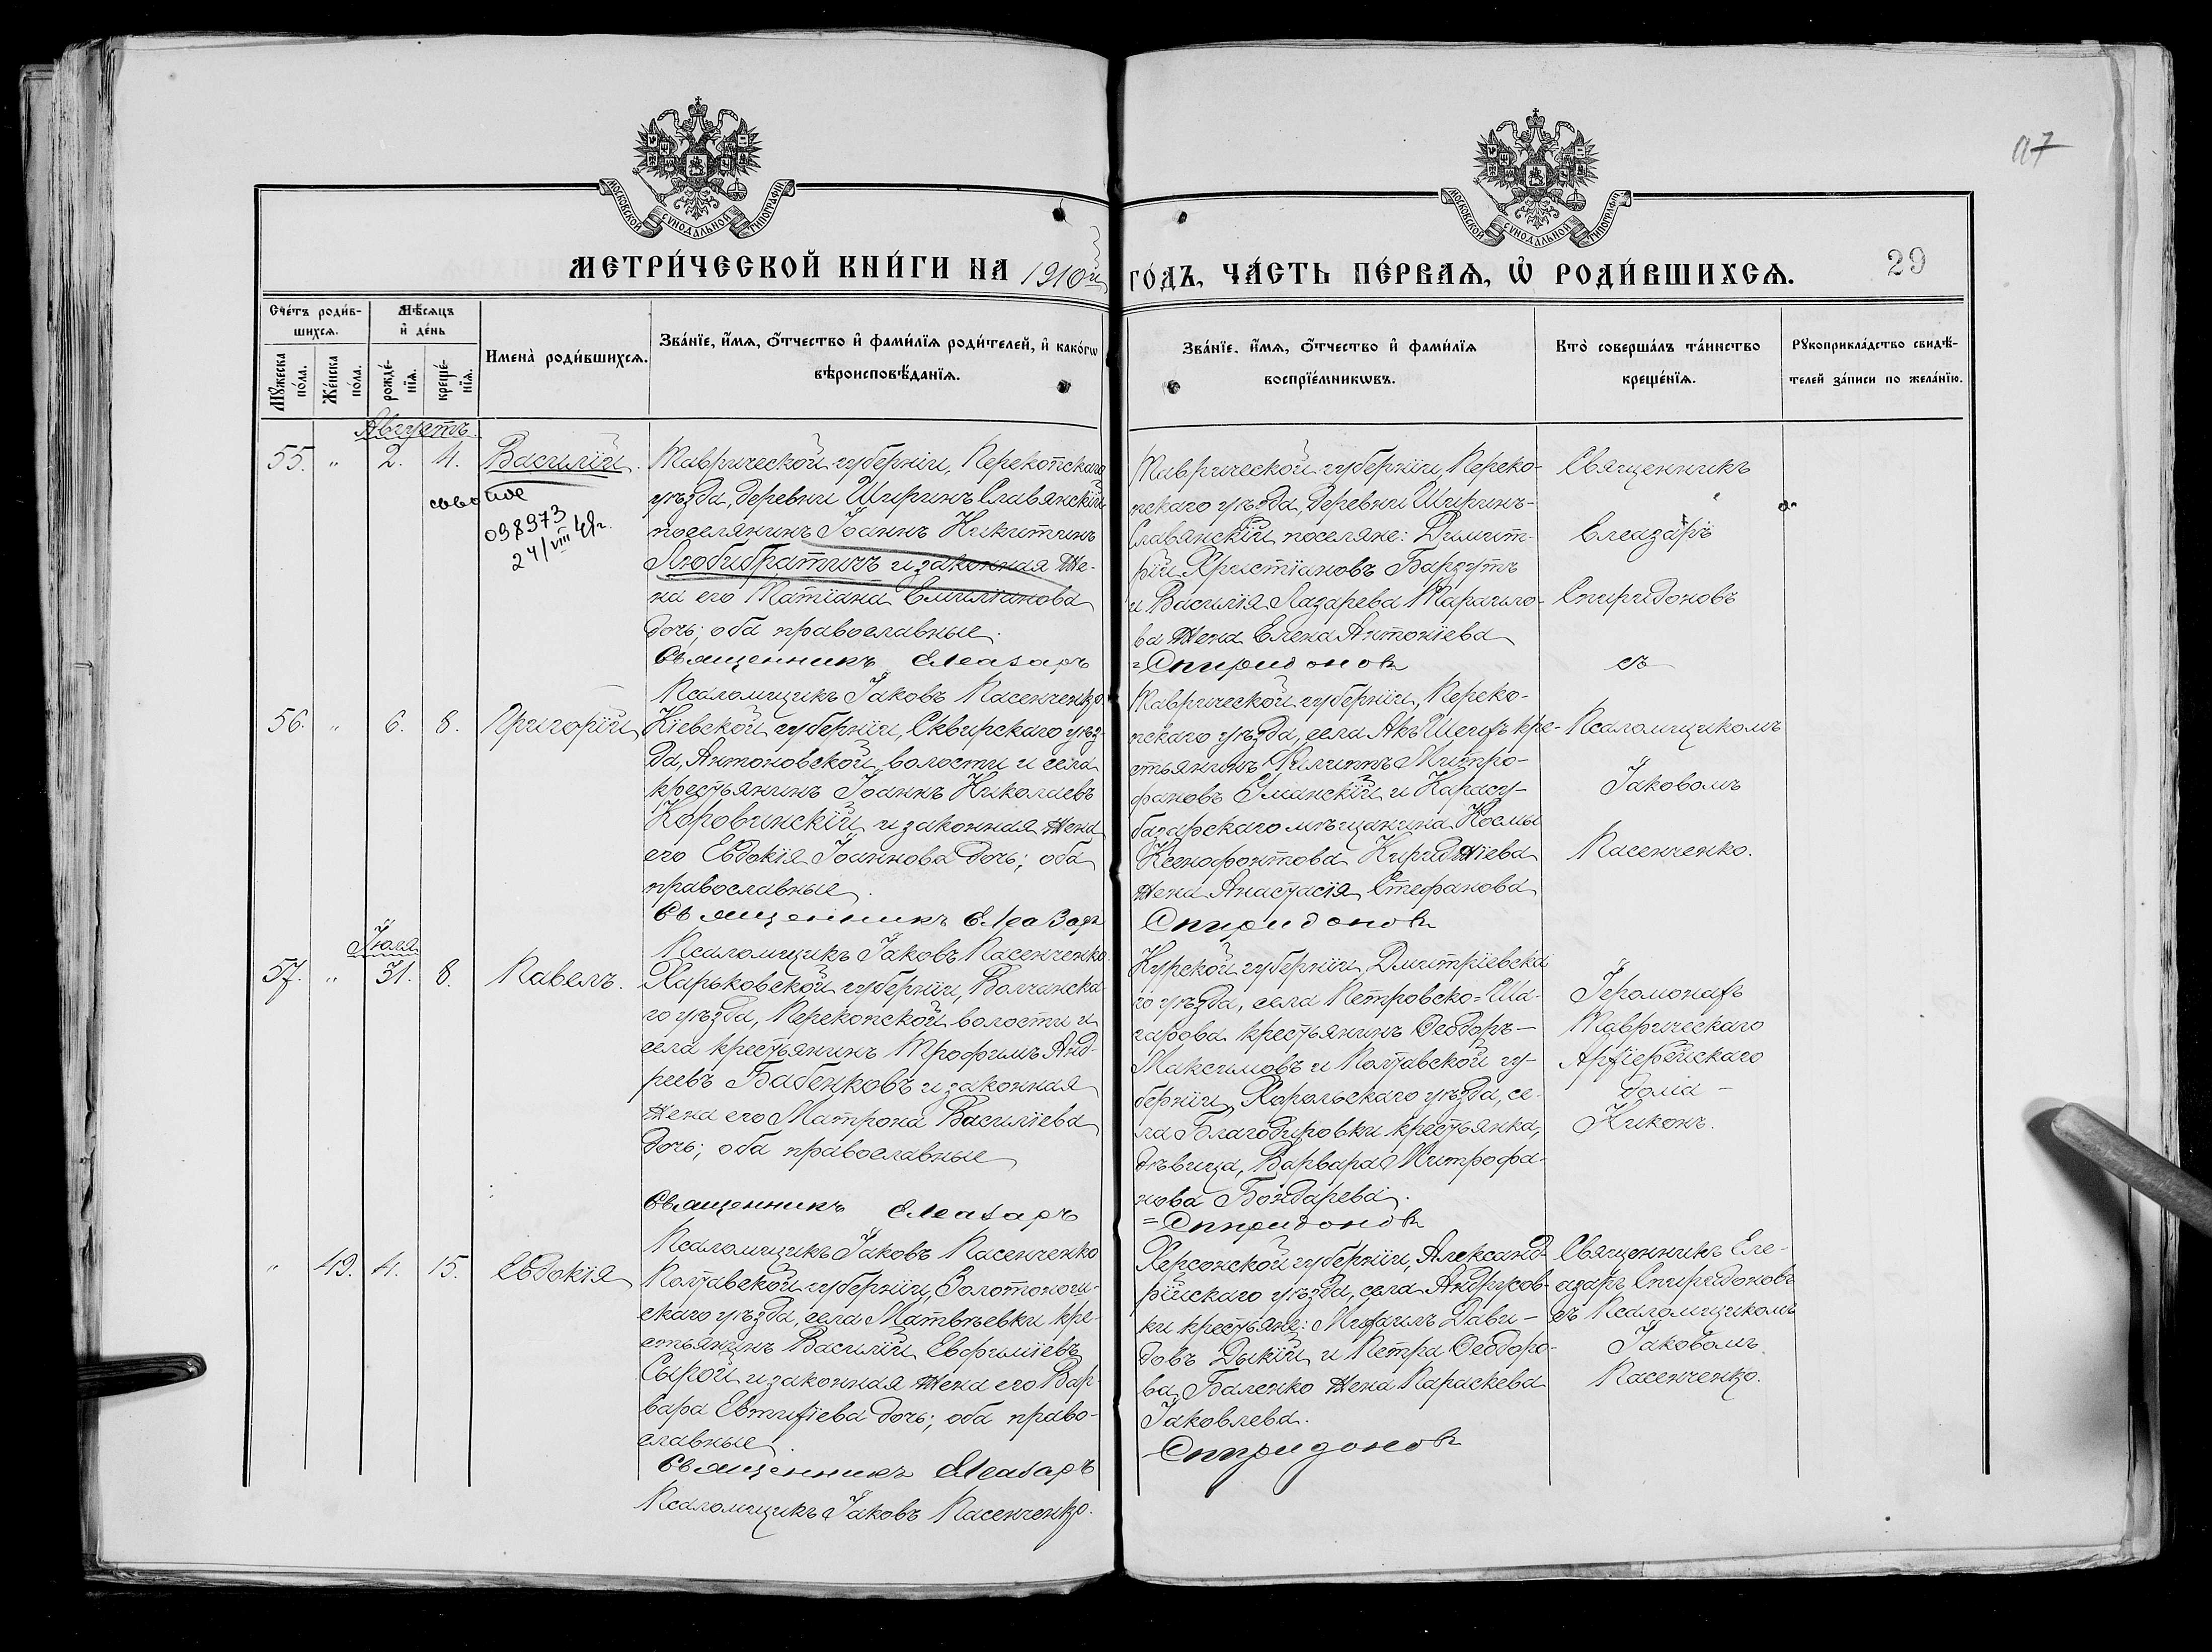 117
МОСКОВСКОЙ СУНОДАЛЬНОЙ ТИПОГРАФІИ
МОСКОВСКОЙ СУНОДАЛЬНОЙ ТИПОГРАФІИ
МЕТРИ́ЧЕСКОЙ КНИ́ГИ НА 1910й ГО́ДЪ, ЧА́СТЬ ПЕ́РВАѦ, Ѡ РОДИ́ВШИХСѦ.
29
Сче́тъ роди́вшихсѧ.
Мꙋ́жеска по́ла.
Же́нска по́ла.
Мѣ́сѧцъ и де́нь
рожде́нїѧ.
креще́нїѧ.
Имена̀ роди́вшихсѧ.
Зва́нїе, и́мѧ, о́тчество и фами́лїѧ роди́телей, и како́гѡ вѣроисповѣ́данїѧ.
Зва́нїе, и́мѧ, о́тчество и фами́лїѧ воспрїе́мникѡвъ.
Кто̀ соверша́лъ та́инство креще́нїѧ.
Рꙋкоприкла́дство свидѣ́телей за́писи по жела́нїю.
Августъ.
55. " 2. 4. Василій.
098973
24/VIII 49г.
Таврической губерніи, Перекопскаго
уѣзда, деревни Ширинъ Славянскій
поселянинъ Іоаннъ Никитинъ
Любибратичъ и законная же-
на его Татіана Емиліанова
дочь; оба православные.
Священникъ Елеазаръ
Псаломщикъ Іаковъ Пасенченко.
Таврической губерніи, Переко-
пскаго уѣзда, деревни Ширинъ-
Славянскій поселяне: Димит-
рій Христіановъ Барзутъ
и Василія Лазарева Тарачило-
ва жена Елена Антоніева
=Спиридоновъ
Священникъ
Елеазаръ
Спиридоновъ
съ
56. " 6. 8. Григорій
Кіевской губерніи, Сквирскаго уѣз-
да, Антоновской волости и села
крестьянинъ Іоаннъ Николаевъ
Коровинскій и законная жена
его Евдокія Іоаннова дочь; оба
православные.
Священникъ Елеазаръ
Псаломщикъ Іаковъ Пасенченко.
Таврической губерніи, Переко-
пскаго уѣзда, села Акъ Шеихъ кре-
стьянинъ Филиппъ Митро-
фановъ Уманскій и Карасу-
базарскаго мѣщанина Космы
Ксенофонтова Кириджіева
жена Анастасія Стефанова
Спиридоновъ
Псаломщикомъ
Іаковомъ
Пасенченко.
Іюля
57. " 31. 8. Павелъ.
Харьковской губерніи, Волчанска-
го уѣзда, Перекопской волости и
села крестьянинъ Трофимъ Анд-
реевъ Бабенковъ и законная
жена его Матрона Василіева
дочь; оба православные
Священникъ Елеазаръ
Псаломщикъ Іаковъ Пасенченко
Курской губерніи, Дмитріевска-
го уѣзда, села Петровско=Ша-
гарова крестьянинъ Ѳеодоръ -
Максимовъ и Полтавской гу-
берніи, Хорольскаго уѣзда, се-
ла Благодировки крестьянка,
дѣвица, Варвара Митрофа-
нова Бондарева.
=Спиридоновъ
Іеромонахъ
Таврическаго
Архіерейскаго
дома -
Никонъ.
" 49. 4. 15. Евдокія
Полтавской губерніи, Золотонош-
скаго уѣзда, села Матвѣевки кре-
стьянинъ Василій Евфиміевъ
Сырой и законная жена его Вар-
вара Евтихіева дочь; оба право-
славные.
Священникъ Елеазаръ
Псаломщикъ Іаковъ Пасенченко.
Херсонской губерніи, Александ-
рійскаго уѣзда, села Андрусов-
ки крестьяне: Михаилъ Дави-
довъ Дыкій и Петра Ѳеодоро-
ва Баленко жена Параскева
Іаковлева.
Спиридоновъ
Священникъ Еле-
азаръ Спиридоновъ
съ Псаломщикомъ
Іаковомъ
Пасенченко.